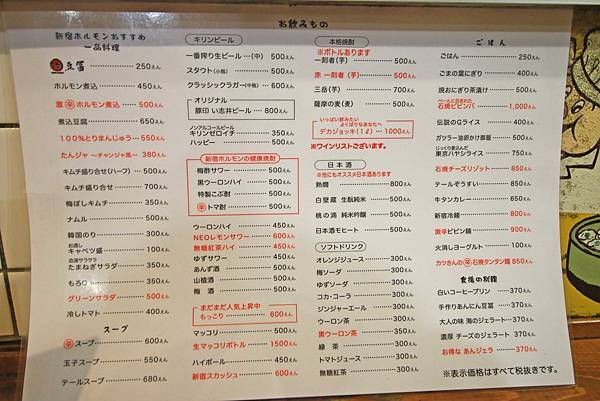 お飲みもの
新宿ホルモンおすすめ
一品料理
豆冨 250えん
ホルモン煮込 450えん
激辛ホルモン煮込 500えん
煮込豆腐 650えん
100%とりまんじゅう 550えん
たんジャ 〜チャンジャ風〜 380えん
キムチ盛り合せ(ハーフ) 500えん
キムチ盛り合せ 700えん
梅ぼしキムチ 350えん
ナムル 500えん
韓国のり 300えん
お通し
キャベツ盛 100えん
血液サラサラ
たまねぎサラダ 350えん
もろQ 350えん
グリーンサラダ 500えん
冷しトマト 400えん
スープ
辛スープ 600えん
玉子スープ 550えん
テールスープ 680えん
キリンビール
一番搾り生ビール (中) 500えん
スタウト(小瓶) 500えん
クラッシックラガー(中瓶) 600えん
オリジナル
豚印 い志井ビール 800えん
ノンアルコールビール
キリンゼロイチ 350えん
ハッピー 500えん
新宿ホルモンの健康焼酎
梅酢サワー 500えん
黒ウーロンハイ 500えん
特製こぶ酎 500えん
辛トマ酎 500えん
ウーロンハイ 450えん
NEOレモンサワー 600えん
無糖紅茶ハイ 450えん
ゆずサワー 450えん
あんず酒 500えん
山楂酒 500えん
梅 酒 500えん
まだまだ人気上昇中
もっこり 600えん
マッコリ 500えん
生マッコリボトル 1500えん
ハイボール 450えん
新宿スカッシュ 500えん
本格焼酎
※ボトルあります
一刻者(芋) 500えん
赤 一刻者(芋) 500えん
三岳(芋) 700えん
薩摩の麦(麦) 500えん
いっぱい飲みたい
よくばりなあなたへ
デカジョッキ(1ℓ) 1000えん
※ワインリストございます。
日本酒
※他にもオススメ日本酒あります
熱燗 800えん
白壁蔵 生酛純米 500えん
桃の滴 純米吟醸 500えん
日本酒モヒート 500えん
ソフトドリンク
オレンジジュース 300えん
梅ソーダ 300えん
ゆずソーダ 300えん
コカ・コーラ 300えん
ジンジャーエール 300えん
ウーロン茶 300えん
黒ウーロン茶 350えん
緑 茶 300えん
トマトジュース 300えん
無糖紅茶 300えん
ごはん
ごはん 250えん
ごまの葉にぎり 400えん
焼おにぎり茶漬け 500えん
ベールに包まれた
石焼ビビンバ 1,000えん
伝説のGライス 400えん
ガツラー油卵かけ御飯 500えん
じっくり煮込んだ
東京ハヤシライス 750えん
石焼チーズリゾット 850えん
テールぞうすい 850えん
牛タンカレー 650えん
新宿冷麺 800えん
激辛ビビン麺 900えん
火消しヨーグルト 100えん
カツさんの辛石焼タンタン麺 850えん
食後の別腹
白いコーヒープリン 370えん
手作りあんにん豆冨 370えん
大人の味 海のジェラート 370えん
濃厚 チーズのジェラート 370えん
お得な あんジェラ 370えん
※表示価格はすべて税抜きです。